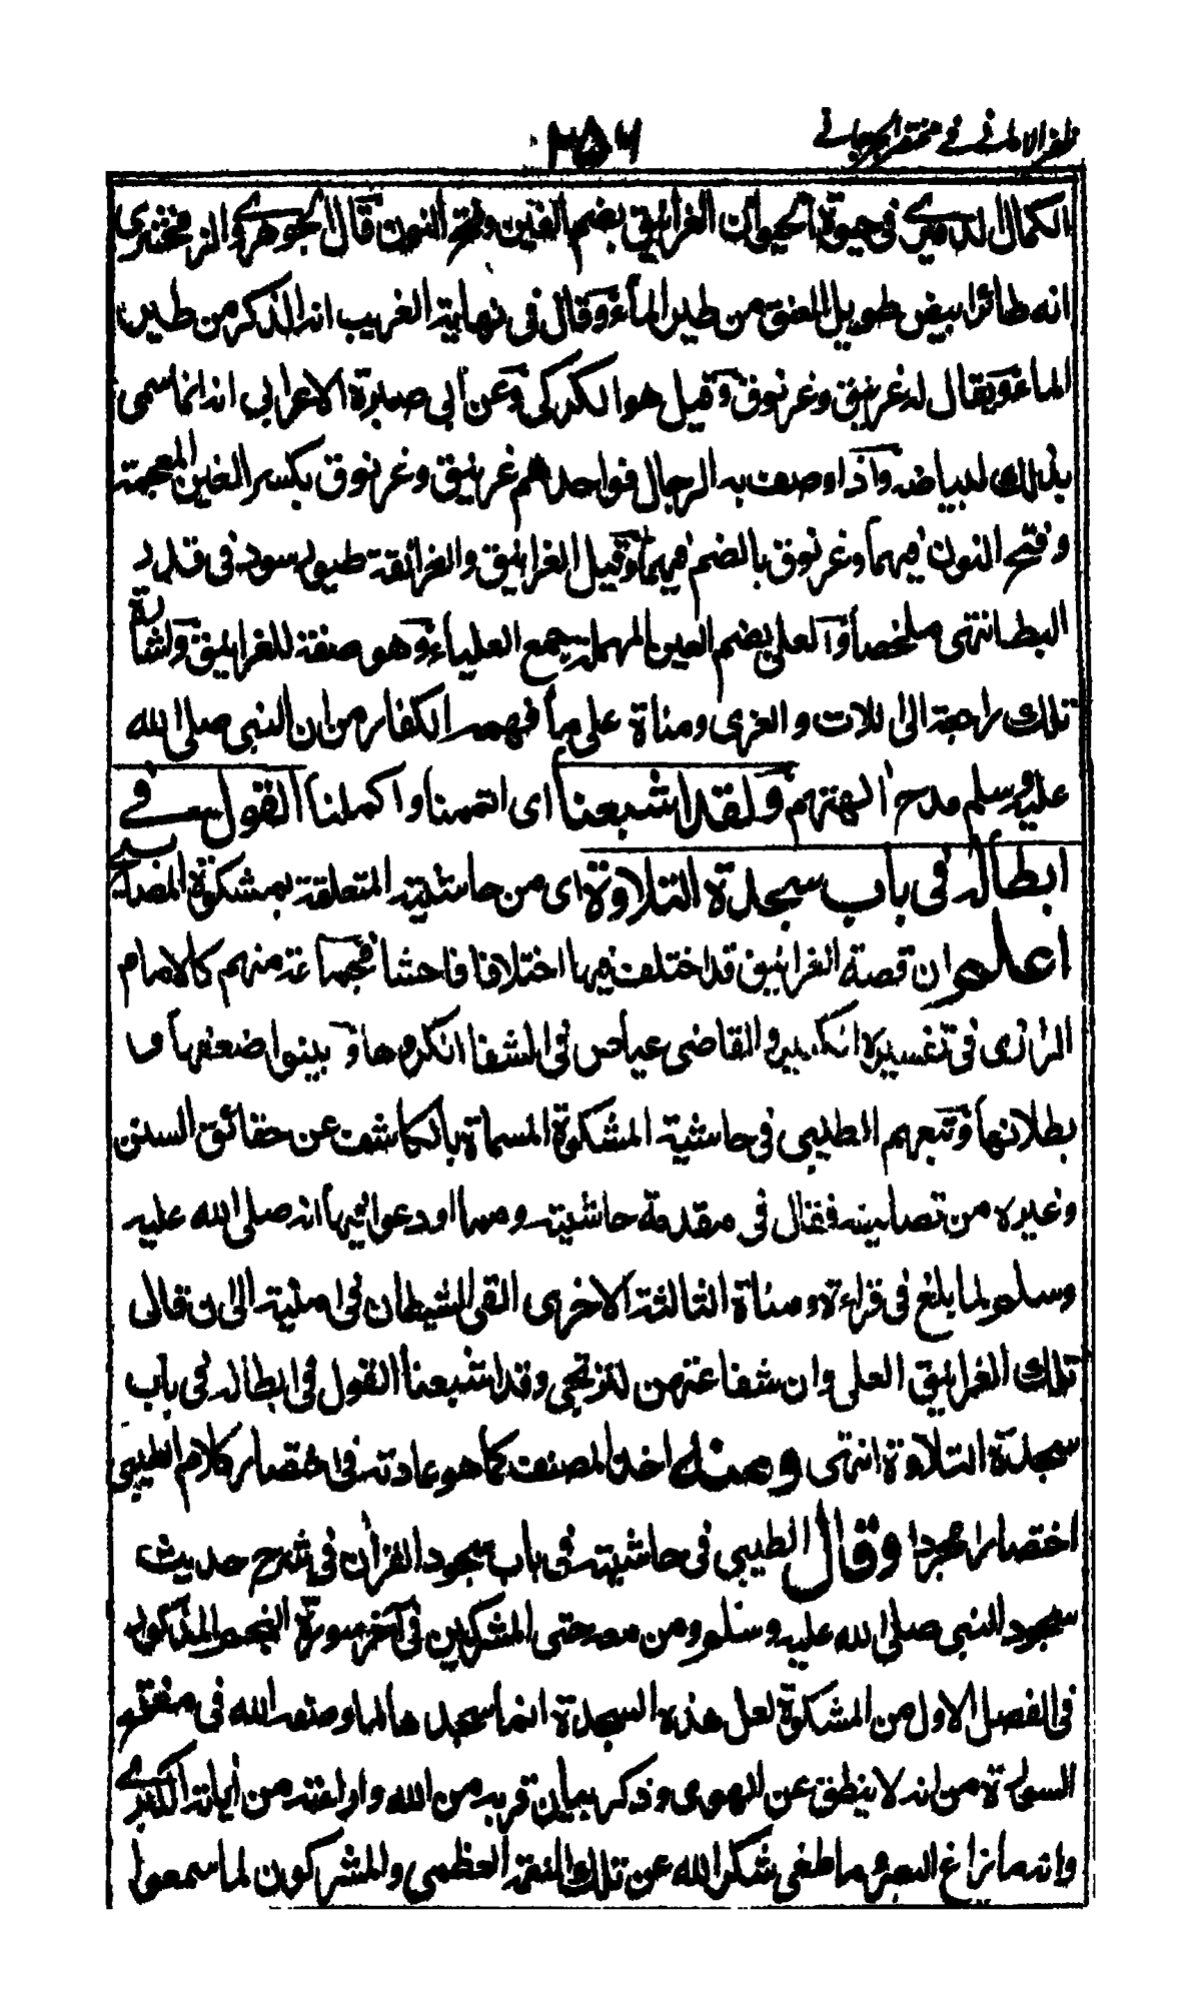 ظفر الامانے فے مختصر الجرجانے
٣٥٦
الكمال الدميرى فى حيوة الحيوان الغرانيق بضم الغين وفتح النون قال الجوهرى والزمخشرى
انه طائر ابيض طويل العنق من طير الماء وقال فى نهاية الغريب انه الذكر من طير
الماء ويقال له غرنيق وغرنوق وقيل هو الكركى وعن ابى صبرة الاعرابى انه انما سمى
بذلك لبياضه واذا وصف به الرجال فواحدهم غرنيق وغرنوق بكسر الغين المعجمة
وفتح النون فيهما وغرنوق بالضم فيهما وقيل الغرانيق والغرانقة طيور سود فى قدر
البط انتهى ملخصا والعلى بضم العين المهملة جمع العلياء وهو صفة للغرانيق واشارة
تلك راجعة الى اللات والعزى ومناة على ما فهمه الكفار من ان النبى صلى الله
عليه وسلم مدح الهتهم ولقد اشبعنا اى اتممنا واكملنا القول فے
ابطاله فى باب سجدة التلاوة اى من حاشيته المتعلقة بمشكوة المصابيح
اعلم ان قصة الغرانيق قد اختلف فيها اختلافا فاحشا فجماعة منهم كالامام
الرازى فى تفسيره الكبير والقاضى عياض فى الشفا انكروها وبينوا ضعفها و
بطلانها وتبعهم الطيبى فى حاشية المشكوة المسماة بالكاشف عن حقائق السنن
وغيره من تصانيفه فقال فى مقدمة حاشيته ومما اودعوا فيها انه صلى الله عليه
وسلم لما بلغ فى قراءته ومناة الثالثة الاخرى القى الشيطان فى امنيته الى ن قالى
تلك الغرانيق العلى وان شفاعتهن لترتجى وقد اشبعنا القول فى ابطاله فى باب
سجدة التلاوة انتهى ومنه اخذ المصنف كما هو عادته فى اختصار كلام الطيبى
اختصارا مجردا وقال الطيبى فى حاشيته فى باب سجود القرآن فى شرح حديث
سجود النبى صلى الله عليه وسلم ومن معه حتى المشركين فى آخر سورة النجم المذكور
فى الفصل الاول من المشكوة لعل هذه السجدة انما سجدها لما وصفه الله فى مفتتح
السورة من انه لا ينطق عن الهوى وذكر بيان قربه من الله وارائته من أياته الكبرے
وانه ما زاغ البصر وما طغى شكرا لله عن تلك النعمة العظمى والمشركون لما سمعوا